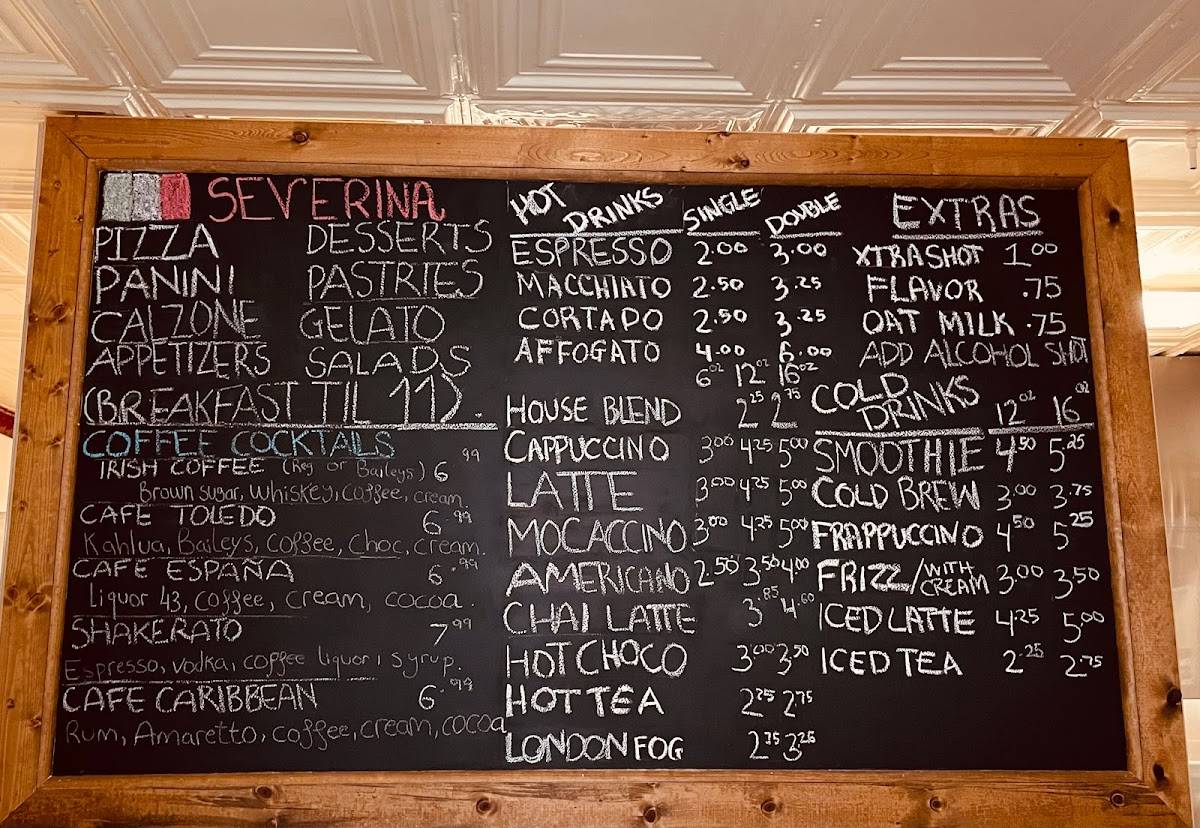 SEVERINA
PIZZA DESSERTS
PANINI PASTRIES
CALZONE GELATO
APPETIZERS SALADS
(BREAKFAST TIL 11).
COFFEE COCKTAILS
IRISH COFFEE (Reg or Baileys) 6.99
Brown sugar, whiskey, coffee, cream
CAFE TOLEDO 6.99
Kahlua, Baileys, coffee, choc, cream.
CAFE ESPAÑA 6.99
liquor 43, coffee, cream, cocoa.
SHAKERATO 7.99
Espresso, vodka, coffee liquor, syrup.
CAFE CARIBBEAN 6.99
Rum, Amaretto, coffee, cream, cocoa
HOT DRINKS SINGLE DOUBLE
ESPRESSO 2.00 3.00
MACCHIATO 2.50 3.25
CORTADO 2.50 3.25
AFFOGATO 4.00 6.00
6oz 12oz 16oz
HOUSE BLEND 2.25 2.75
CAPPUCCINO 3.00 4.25 5.00
LATTE 3.00 4.25 5.00
MOCACCINO 3.00 4.25 5.00
AMERICANO 2.50 3.50 4.00
CHAI LATTE 3.85 4.60
HOT CHOCO 3.00 3.50
HOT TEA 2.25 2.75
LONDON FOG 2.75 3.25
EXTRAS
XTRA SHOT 1.00
FLAVOR .75
OAT MILK .75
ADD ALCOHOL SHOT
COLD DRINKS 12oz 16oz
SMOOTHIE 4.50 5.25
COLD BREW 3.00 3.75
FRAPPUCCINO 4.50 5.25
FRIZZ/WITH CREAM 3.00 3.50
ICED LATTE 4.25 5.00
ICED TEA 2.25 2.75